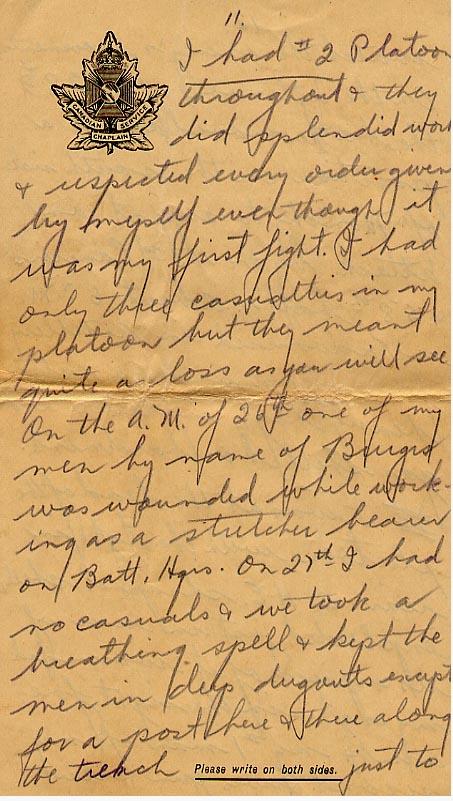 11.
I had # 2 Platoon
throughout & they
did splendid work
CANADIAN CHAPLAIN SERVICE
& respected every order given
by myself even though it
was my first fight. I had
only three casualties in my
platoon but they meant
quite a loss as you will see
On the A.M. of 26th one of my
men by name of
was wounded while work-
ing as a stretcher bearer
on Batt. Hqrs. On 27th I had
no casuals & we took a
breathing spell & kept the
men in deep dugouts except
for a post here & there along
the trench just to
Please write on both sides.